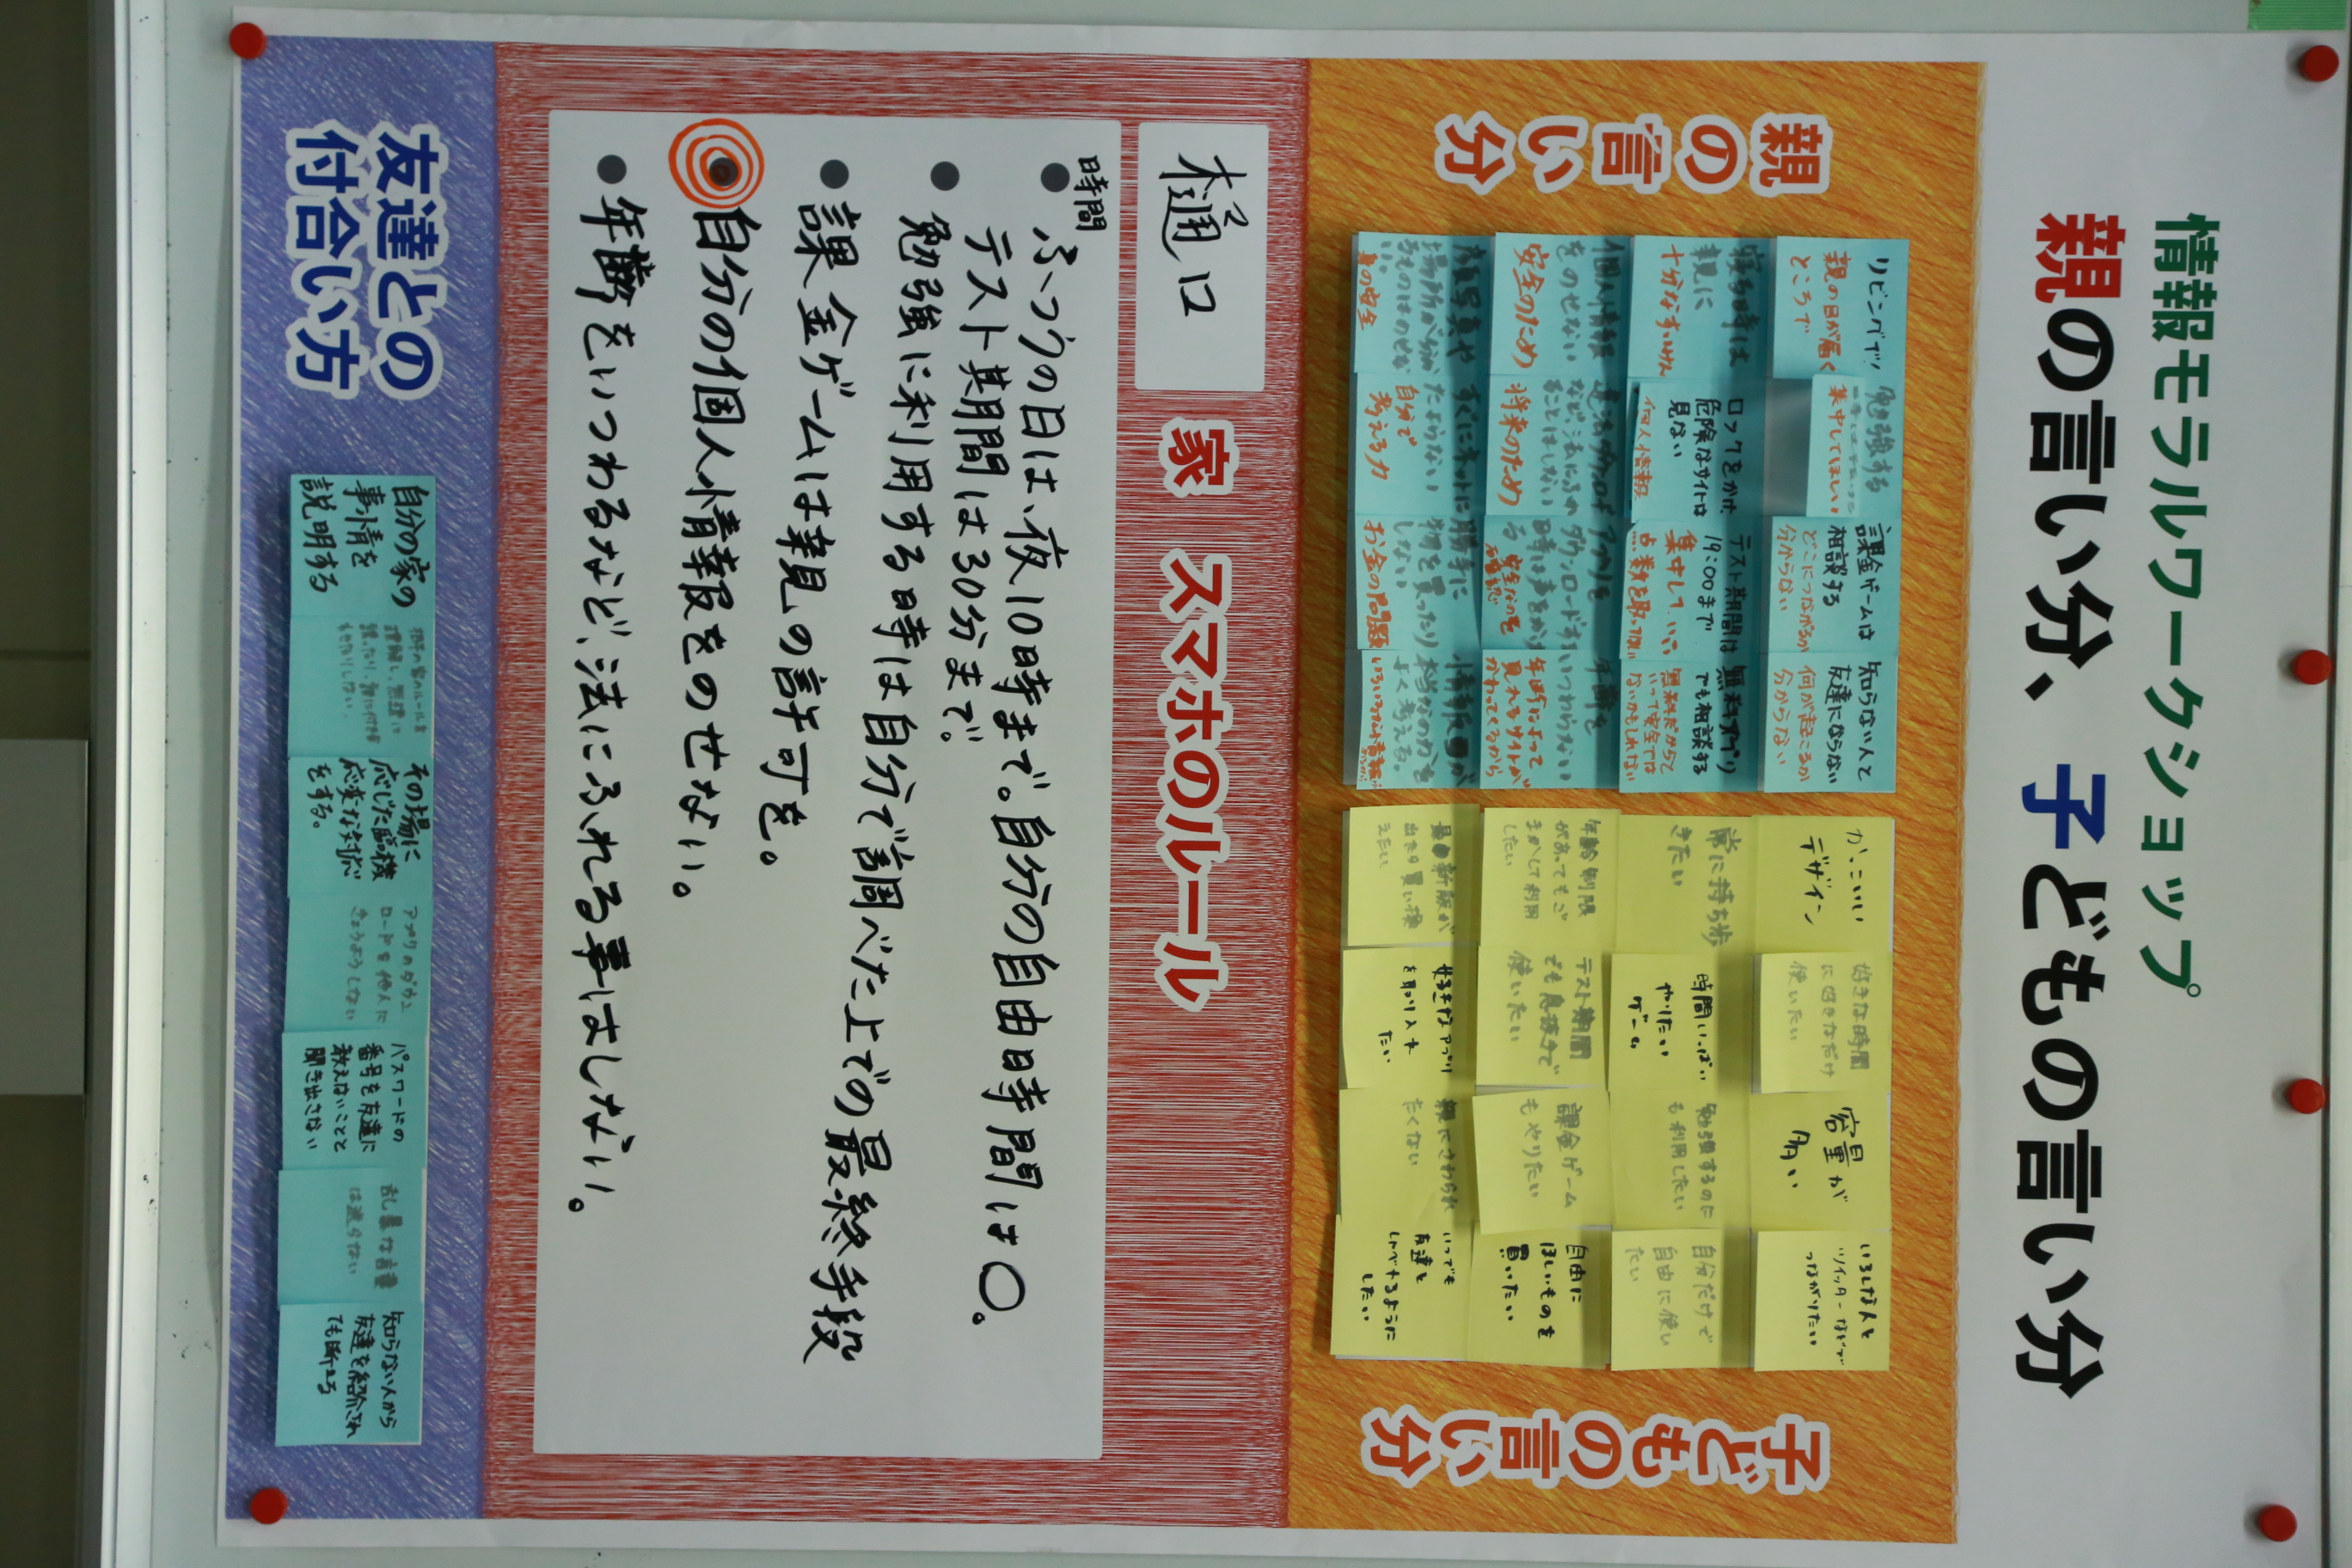 情報モラルワークショップ
親の言い分、子どもの言い分
親の
言い分
リビングで!
親の目が届く
ところで
勉強する
集中してほしい
課金ゲームは
相談する
どこにつながるか
分からない
知らない人と
友達にならない
何が起こるか
分からない
寝る時は
親に
十分なすいみん
ロックをかけ、
危険なサイトは
見ない
個人情報
テスト期間は
19:00まで
集中して、いい
点数を取ってほしい
無料アプリ
でも相談する
無料だからと
いって安全では
ないかもしれない
個人情報
をのせない
安全のため
違法ダウンロード
など、法にふれる
ことはしない
将来のため
アプリを
ダウンロードする
時は声をかけ
る
安全なのを
確認
年齢を
いつわらない
年齢によって
見れるサイトが
かわってくるから
顔写真や
場所が分かる
ものはのせな
い。
身の安全
すぐにネットに
たよらない
自分で
考える力
勝手に
物を買ったり
しない
お金の問題
情報が
本当なのかを
よく考える。
かっこいい
デザイン
好きな時間
に好きなだけ
使いたい
容量が
多い
いろんな人と
ツイッターなどで
つながりたい
常に持ち歩
きたい
時間いっぱい
やりたい
ゲーム
勉強するのに
も利用したい
自分だけで
自由に使い
たい
年齢制限
があってもご
まかして利用
したい
テスト期間
でも息抜きで
使いたい
課金ゲーム
もやりたい
自由に
ほしいものを
買いたい
最新版が
出たら買い換
えたい
好きなアプリ
を取り入れ
たい
親にさわられ
たくない
いつでも
友達と
しゃべれるように
したい
子どもの
言い分
樋口
家 スマホのルール
時間
● ふつうの日は、夜10時まで。自分の自由時間は〇。
テスト期間は30分まで。
● 勉強に利用する時は自分で調べた上での最終手段
● 課金ゲームは親の許可を。
● 自分の個人情報をのせない。
● 年齢をいつわるなど、法にふれる事はしない。
友達との
付合い方
自分の家の
事情を
説明する
相手の家のルールを
理解し、無理に
その場に
応じた臨機
応変な対応
をする。
アプリのダウン
ロードを他人に
きょうようしない
パスワードの
番号を友達に
教えないことと
聞き出さない
乱暴な言葉
は送らない
知らない人から
友達を紹介され
ても断る